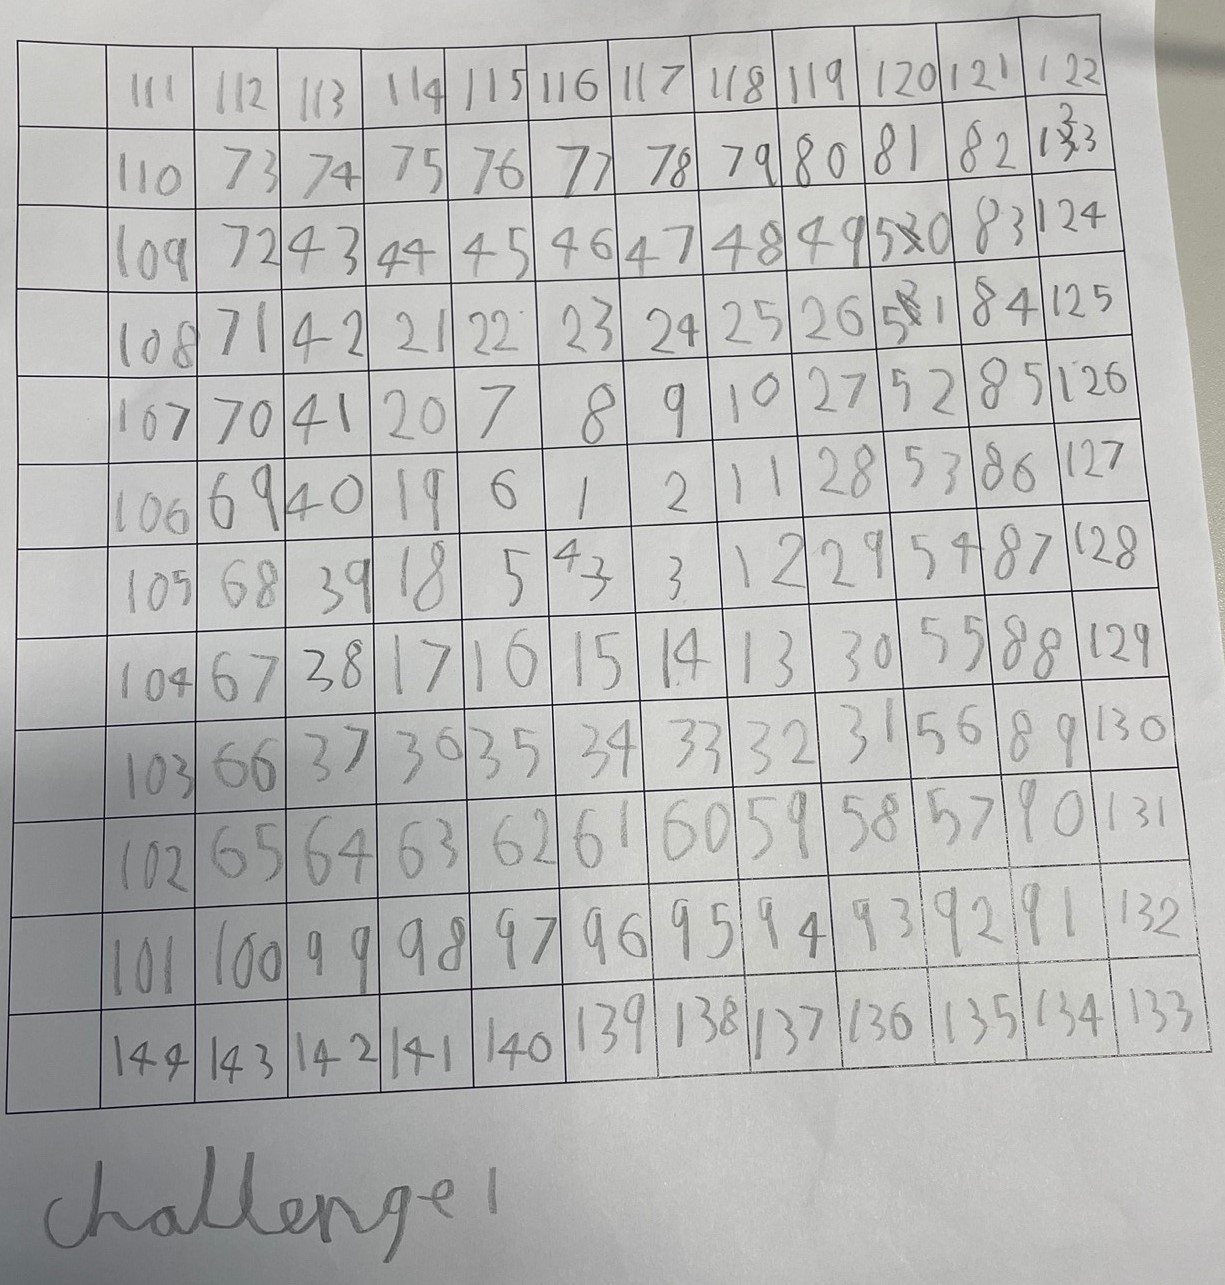 111 112 113 114 115 116 117 118 119 120 121 122
110 73 74 75 76 77 78 79 80 81 82 123
109 72 43 44 45 46 47 48 49 50 83 124
108 71 42 21 22 23 24 25 26 51 84 125
107 70 41 20 7 8 9 10 27 52 85 126
106 69 40 19 6 1 2 11 28 53 86 127
105 68 39 18 5 4 3 12 29 54 87 128
104 67 38 17 16 15 14 13 30 55 88 129
103 66 37 36 35 34 33 32 31 56 89 130
102 65 64 63 62 61 60 59 58 57 90 131
101 100 99 98 97 96 95 94 93 92 91 132
144 143 142 141 140 139 138 137 136 135 134 133
challenge 1